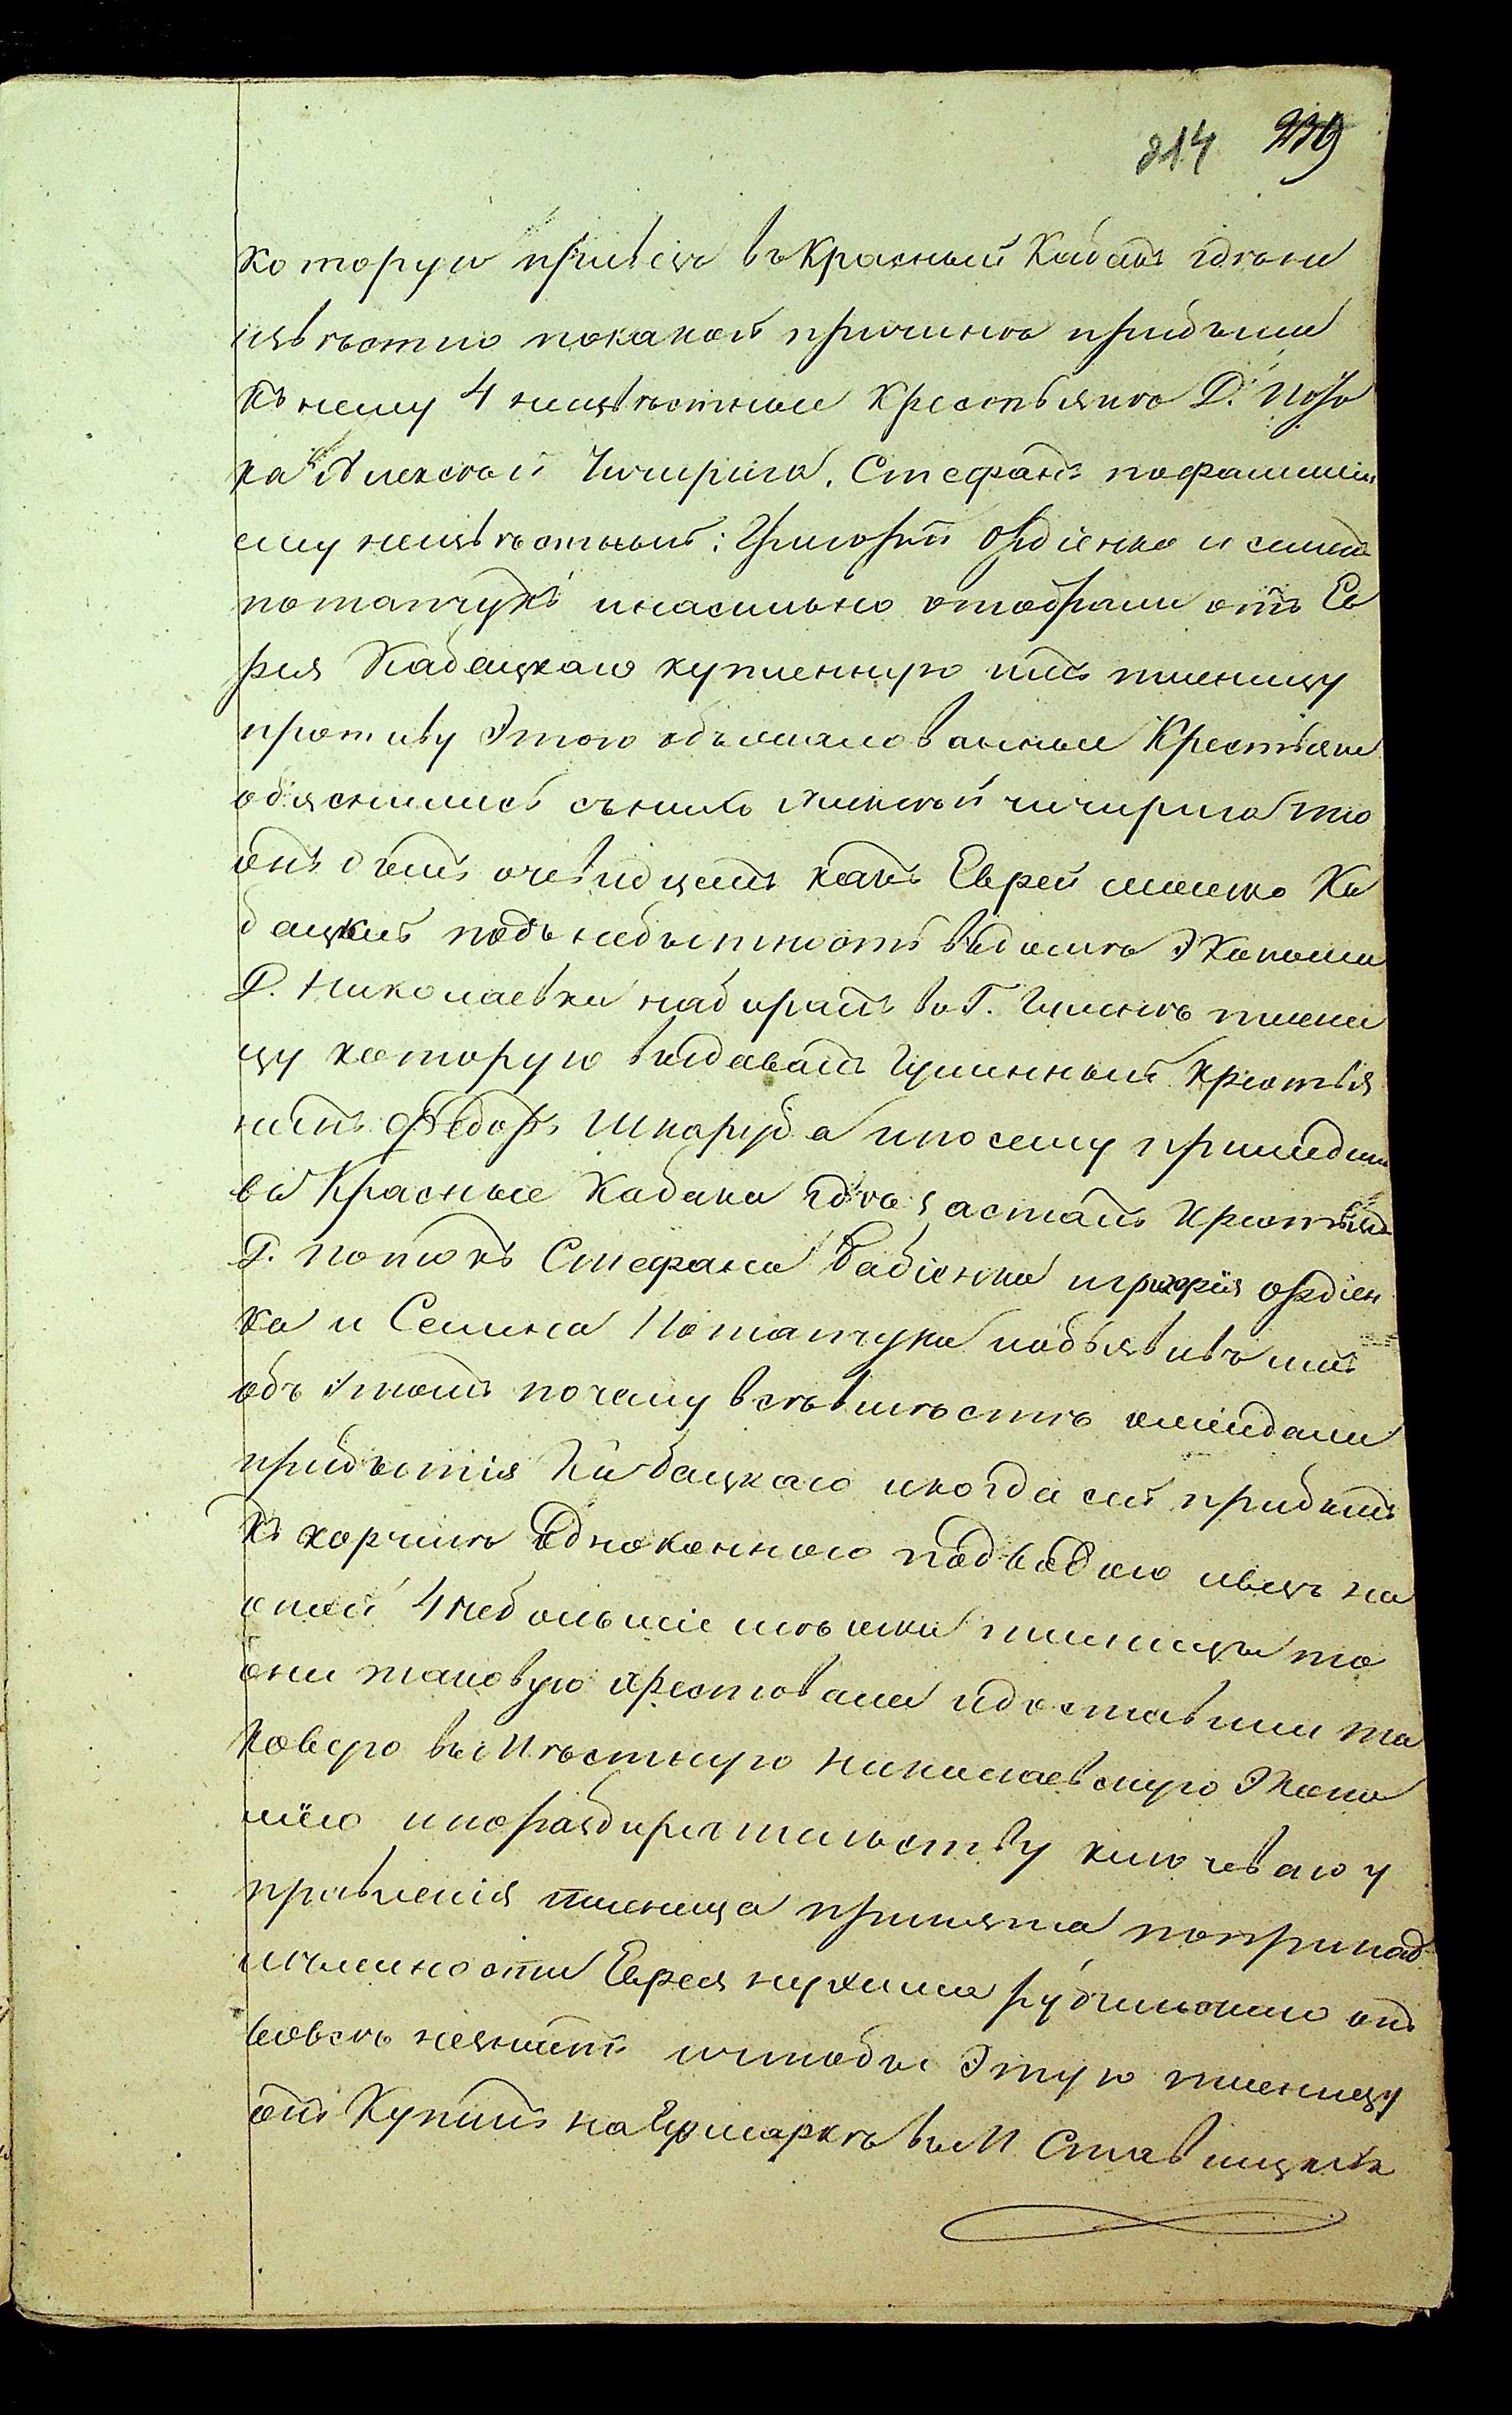 214 239
которую привезъ въ Красный Кабакъ гдѣ не
извѣстно покакой причинѣ прибыли
Къ нему 4 неизвѣстные Крестьянѣ Д.
ка Алексѣй Чичирига, Стефанъ пофамиліи
ему неизвѣстный: Григорій Ордіенко и Семенъ
потапчукъ инасильно отобрали отъ Ев
рея Кабацкаго купленную имъ пшеницу
противу Этого объоналованные Крестьяне
обяснились съ нихъ Алексѣй чичирига что
онъ былъ очевидцемъ какъ Еврей мошко Ка
бацкій подъ небытность вѣдомѣ Эконома
Д. Николаевки набиралъ въ Г. Гумнѣ пшени
цу которую выдавалъ Гуменный крестья
нинъ Федоръ Шкаруба ипосему пришедши
въ Красные Кабаки гдѣ засталъ крестьянъ
Д. Потокъ Стефана Бабіенка игригорія Ордіен
ка и Семена Потапчука иобъявивъ имъ
объ этомъ почему всѣ вмѣстѣ ожидали
прибытія Кабацкаго икогда сей прибылъ
Къ корчмѣ одноконною подводою ивезъ на
оной 4 небольшіе мѣшки пшеницы то
они таковую арестовали идоставили та
ковую въ Мѣстную Николаевскую Эконо
мію ипоразбирательству ключеваго у
правленія пшеница принята попринад
лѣжности Еврея нухима Рубинскаго онъ
вовсѣ незнаетъ ичтобы Эту ю пшеницу
онъ Купилъ на Ярмаркѣ въ М. Ставищахъ